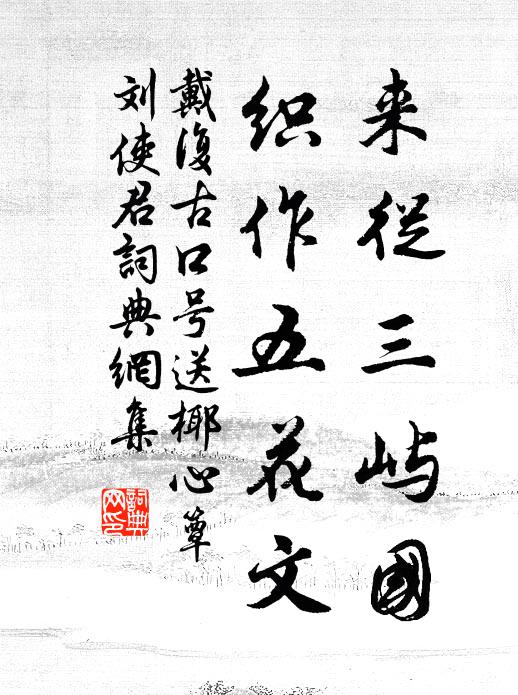 来從三嶼國
织作五花文
戴復古口号送椰心簟
刘使君詞典網集
詞典網印